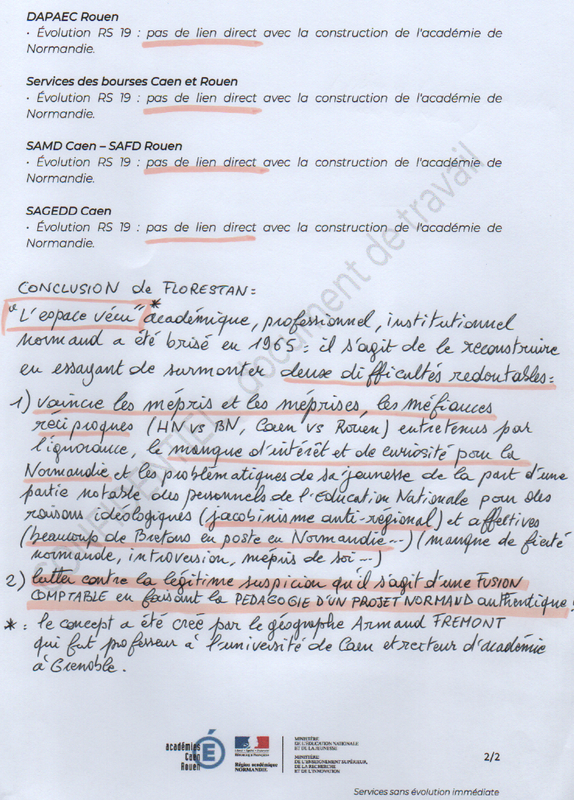 DAPAEC Rouen
• Évolution RS 19 : pas de lien direct avec la construction de l'académie de
Normandie.
Services des bourses Caen et Rouen
• Évolution RS 19 : pas de lien direct avec la construction de l'académie de
Normandie.
SAMD Caen – SAFD Rouen
• Évolution RS 19 : pas de lien direct avec la construction de l'académie de
Normandie.
SAGEDD Caen
• Évolution RS 19 : pas de lien direct avec la construction de l'académie de
Normandie.
CONFIDENTIEL - document de travail
CONCLUSION de FLORESTAN :
"L'espace vécu"* académique, professionnel, institutionnel
normand a été brisé en 1965 : il s'agit de le reconstruire
en essayant de surmonter deux difficultés redoutables :
1) vaincre les mépris et les méprises, les méfiances
réciproques (HN vs BN, Caen vs Rouen) entretenus par
l'ignorance, le manque d'intérêt et de curiosité pour la
Normandie et les problématiques de sa jeunesse de la part d'une
partie notable des personnels de l'Education Nationale pour des
raisons idéologiques (jacobinisme anti-régional) et affectives
(beaucoup de Bretons en poste en Normandie...) (manque de fierté
normande, introversion, mépris de soi...)
2) lutter contre la légitime suspicion qu'il s'agit d'une FUSION
COMPTABLE en faisant la PEDAGOGIE D'UN PROJET NORMAND authentique !
* : le concept a été créé par le géographe Armand FREMONT
qui fut professeur à l'université de Caen et recteur d'académie
à Grenoble.
académies
Caen
Rouen
Région académique
NORMANDIE
MINISTÈRE
DE L'ÉDUCATION NATIONALE
ET DE LA JEUNESSE
MINISTÈRE
DE L'ENSEIGNEMENT SUPÉRIEUR,
DE LA RECHERCHE
ET DE L'INNOVATION
2/2
Services sans évolution immédiate